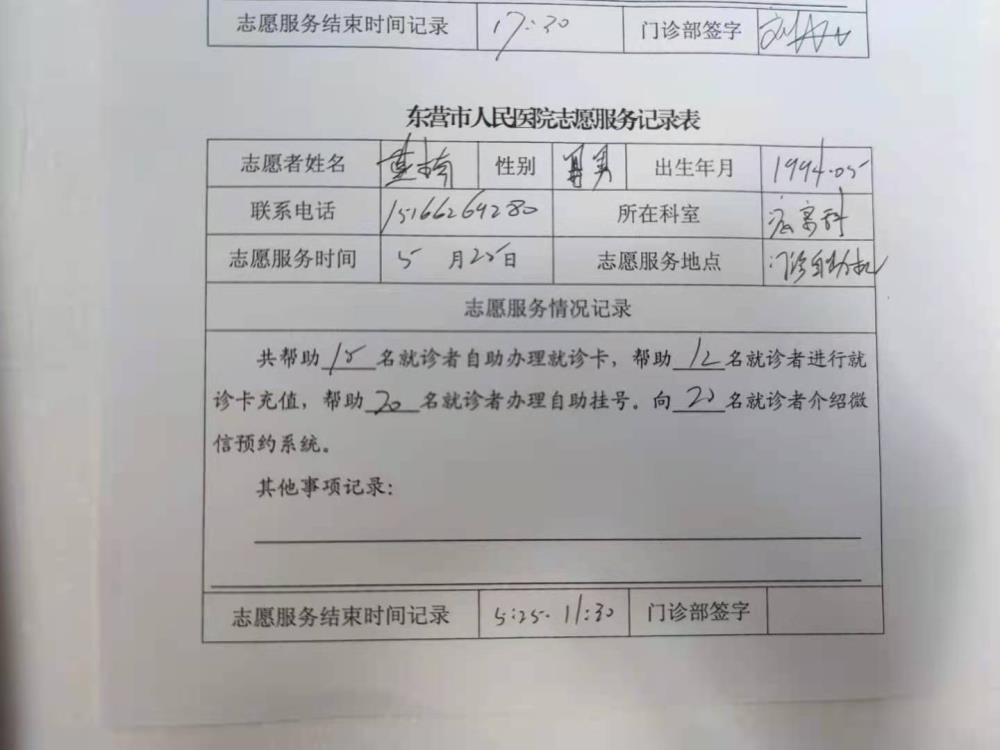 志愿服务结束时间记录 17:30 门诊部签字
东营市人民医院志愿服务记录表
志愿者姓名 性别 男 出生年月 1994.05
联系电话 15166269280 所在科室 科
志愿服务时间 5 月25日 志愿服务地点 门诊自助机
志愿服务情况记录
共帮助 15 名就诊者自助办理就诊卡，帮助 12 名就诊者进行就
诊卡充值，帮助 20 名就诊者办理自助挂号。向 20 名就诊者介绍微
信预约系统。
其他事项记录：
志愿服务结束时间记录 5:25. 11:30 门诊部签字